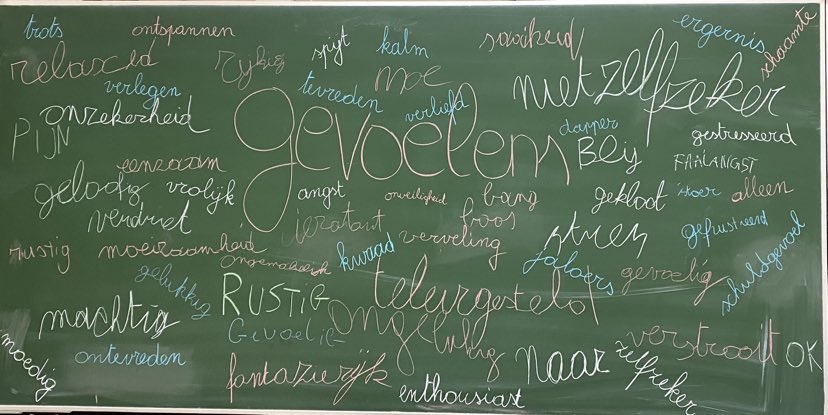 trots
ontspannen
ergernis
schaamte
spijt
kalm
saaiheid
relaxed
moe
verlegen
tevreden
niet zelfzeker
onzekerheid
verliefd
gevoelens
dapper
gestresseerd
PIJN
Blij
FAALANGST
eenzaam
vrolijk
angst
onveiligheid
bang
gekloot
stoer
alleen
verdriet
boos
gefrustreerd
rustig
moeizaamheid
kwaad
verveling
jaloers
ongemakkelijk
gevoelig
schuldgevoel
gelukkig
RUSTIG
teleurgesteld
machtig
ongelukkig
verstrooit
OK
moedig
ontevreden
fantazierijk
naar
zelfzeker
enthousiast